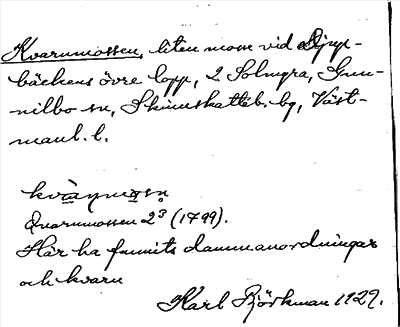 Kvarnmossen, liten mosse vid Djup-
bäckens övre lopp, 2 Solmyra, Gun-
nilbo sn, Skinnskatteb. bg, Väst-
manl. l.
Qvarnmossen 2³ (1799).
Här ha funnits dammanordningar
och kvarn
Karl Björkman 1929.